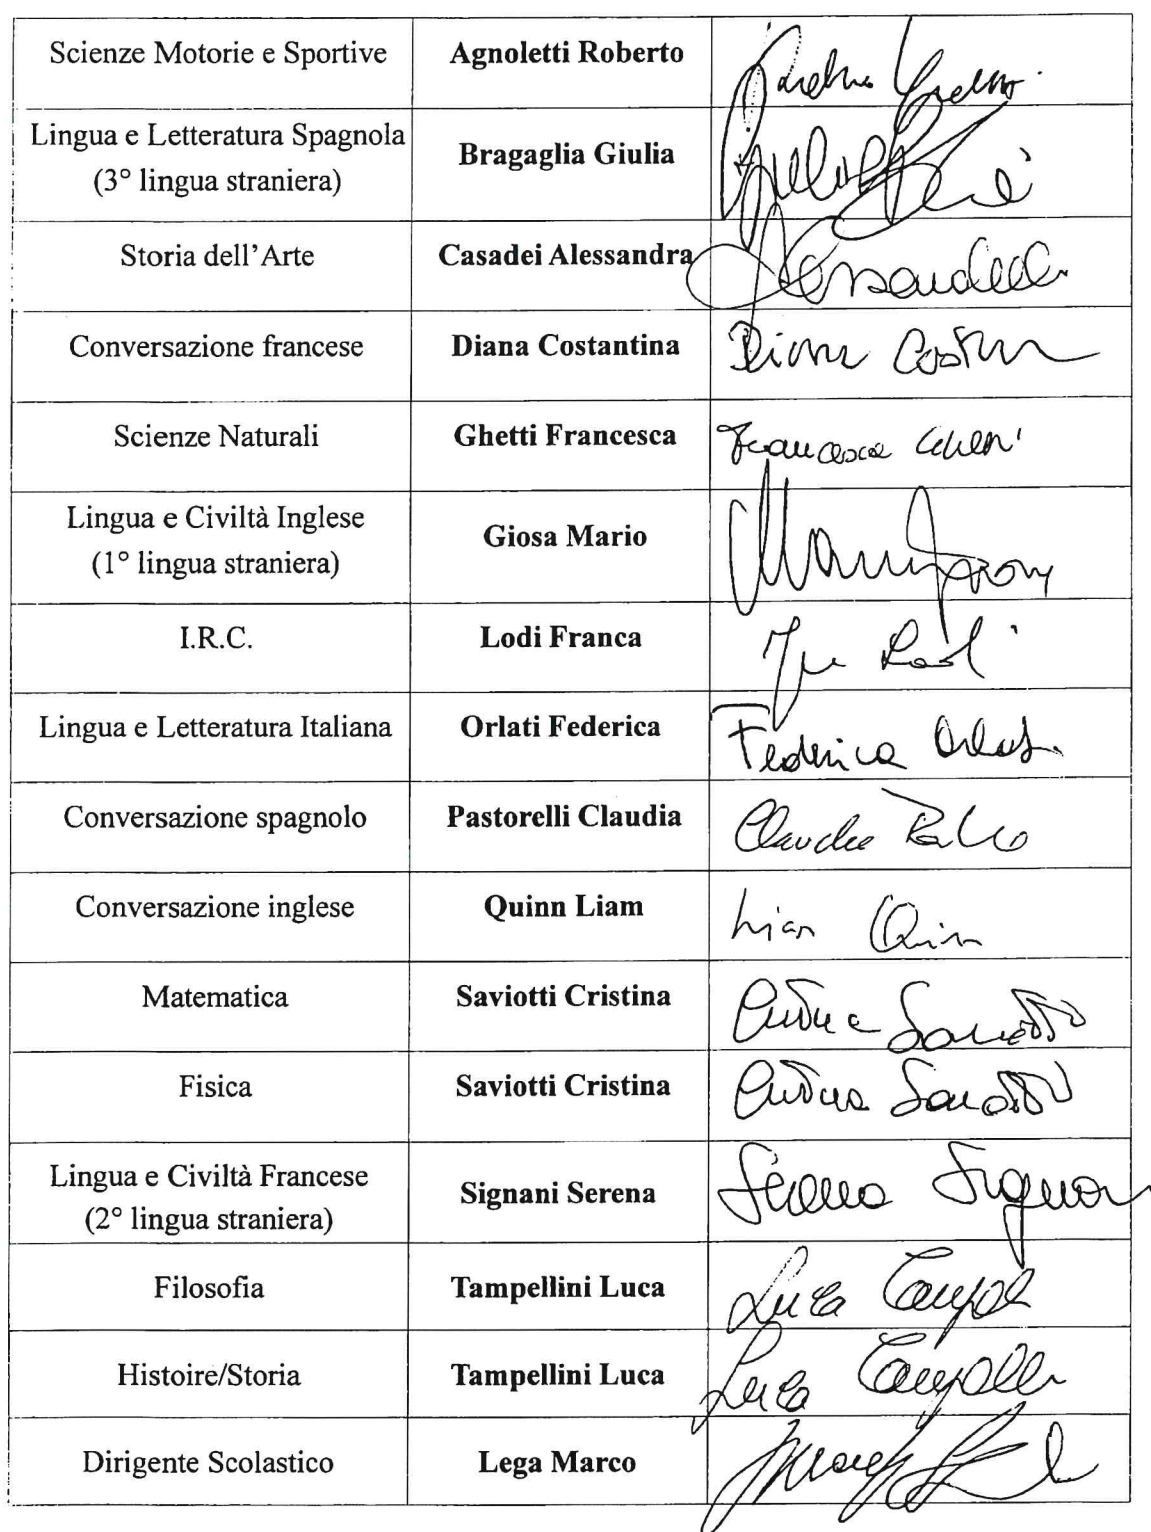 Scienze Motorie e Sportive Agnoletti Roberto
Lingua e Letteratura Spagnola
(3° lingua straniera) Bragaglia Giulia
Storia dell'Arte Casadei Alessandra
Conversazione francese Diana Costantina Diana
Scienze Naturali Ghetti Francesca Francesca
Lingua e Civiltà Inglese
(1° lingua straniera) Giosa Mario
I.R.C. Lodi Franca
Lingua e Letteratura Italiana Orlati Federica Federica
Conversazione spagnolo Pastorelli Claudia Claudia
Conversazione inglese Quinn Liam Liam Quinn
Matematica Saviotti Cristina
Fisica Saviotti Cristina
Lingua e Civiltà Francese
(2° lingua straniera) Signani Serena Serena
Filosofia Tampellini Luca Luca
Histoire/Storia Tampellini Luca Luca
Dirigente Scolastico Lega Marco